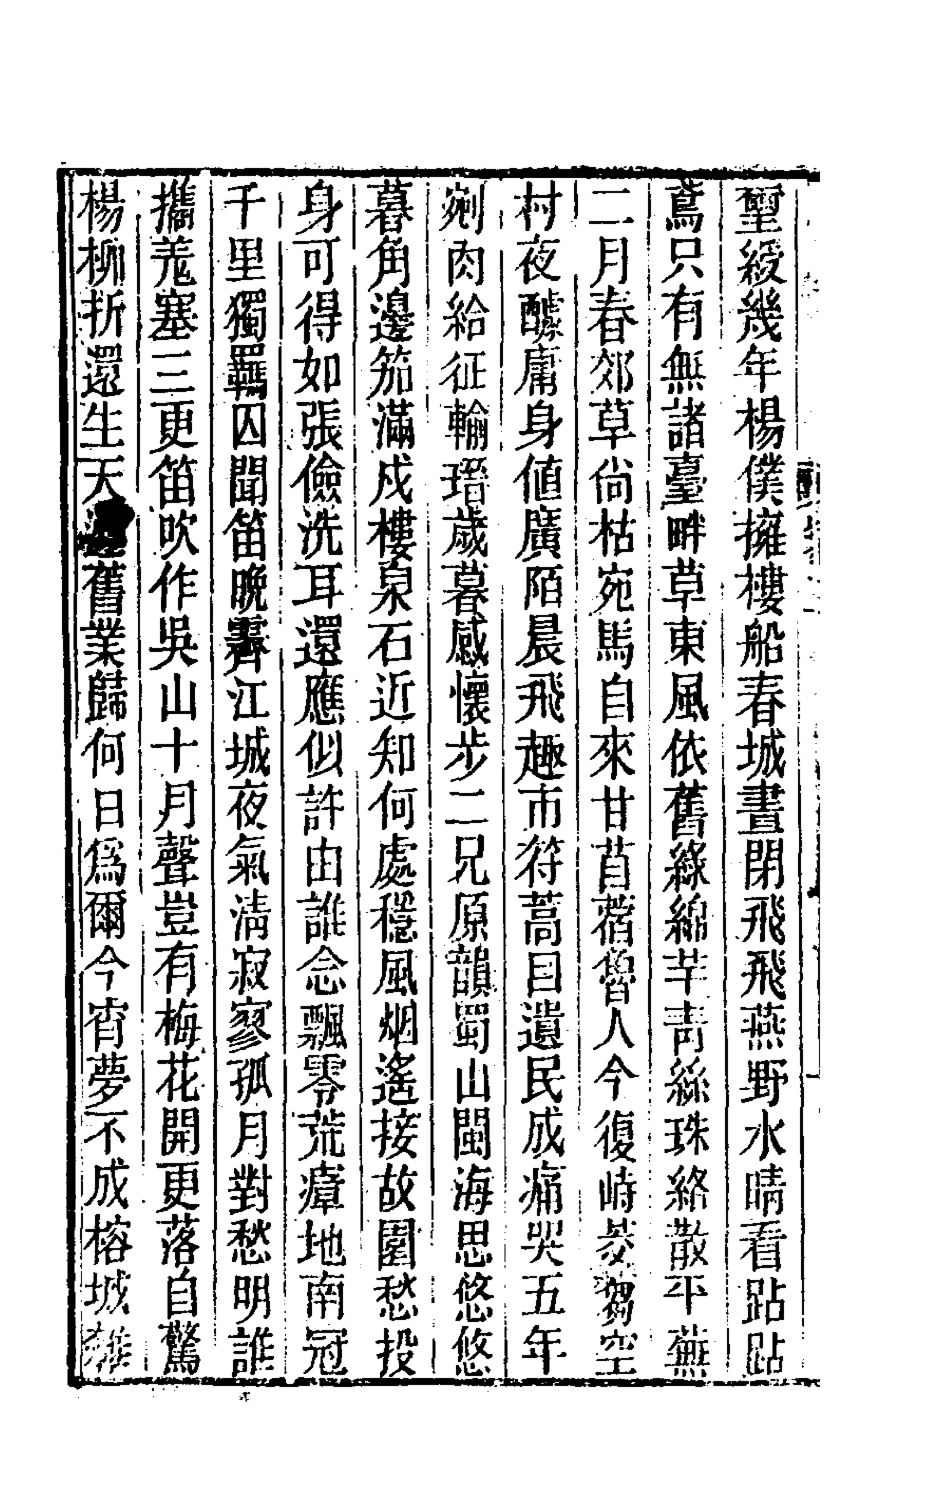 璽綬幾年楊僕擁樓船春城晝閉飛飛燕野水晴看跕跕
鳶只有無諸臺畔草東風依舊綠綿芊靑絲珠絡散平蕪
二月春郊草尙枯宛馬自來甘苜蓿魯人今復峙芻空
村夜醵庸身値廣陌晨飛趣市符蒿目遺民成痛哭五年
剜肉給征輸瑨歲暮感懷步二兄原韻蜀山閩海思悠悠
暮角邊笳滿戍樓泉石近知何處穩風烟遙接故園愁投
身可得如張儉洗耳還應似許由誰念飄零荒瘴地南冠
千里獨羈囚聞笛晩霽江城夜氣淸寂寥孤月對愁明誰
攜羗塞三更笛吹作吳山十月聲豈有梅花開更落自驚
楊柳折還生天舊業歸何日爲爾今宵夢不成榕城